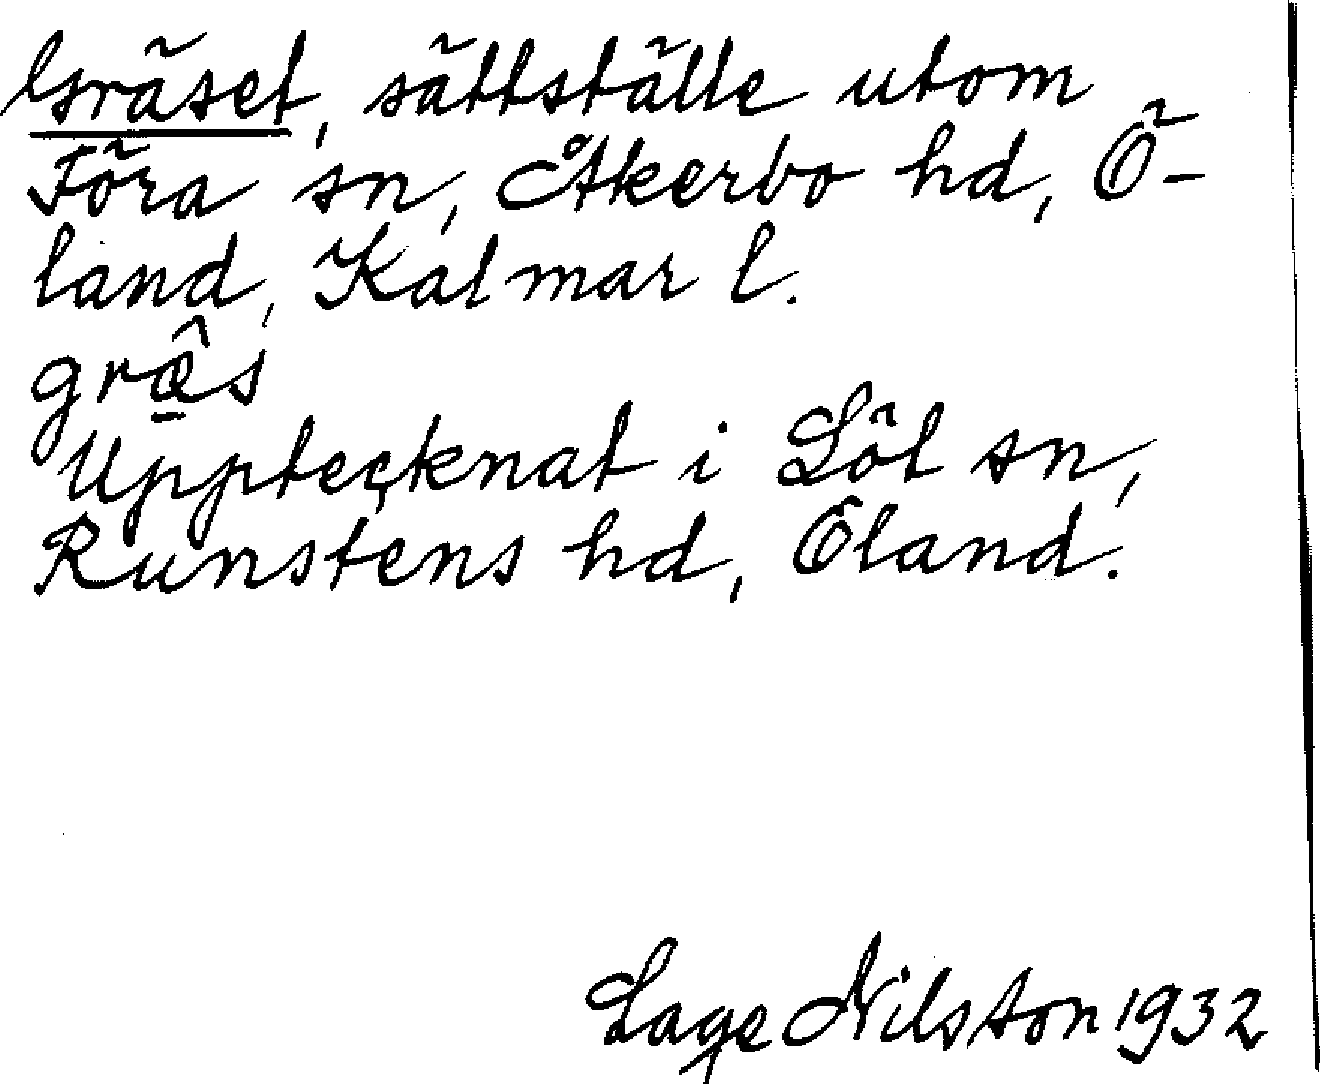 Gräset, sättställe utom
Föra sn, Åkerbo hd, Ö-
land, Kalmar l.
græ̱̂s
Upptecknat i Löt sn,
Runstens hd, Öland.
Lage Nilsson 1932